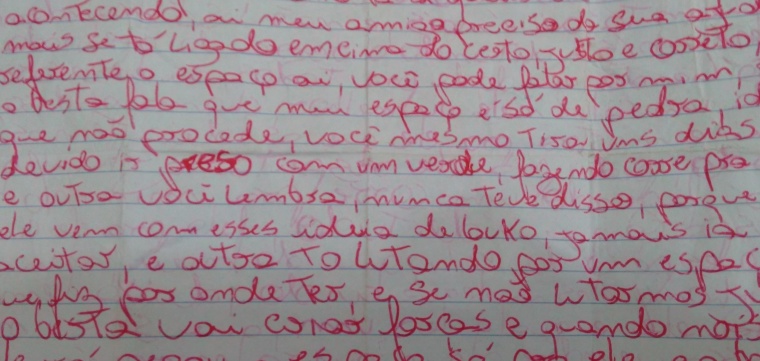 acontecendo, ai meu amigo preciso da sua
mais se tá ligado emcima do certo, justo e correto,
referente o espaço ai, você pode falar por mim,
o besta fala que meu espaço é só de pedra
que não procede, você mesmo Tirou uns dias
devido ir preso com um verde, fazendo corre pra
e outra você lembra, nunca Teve disso, porque
ele vem com esses ideia de louko, jamais ia
aceitar, e outra To lutando por um espaç
fiz por onde Ter, e se não lutarmos
o besta vai criar forças e quando